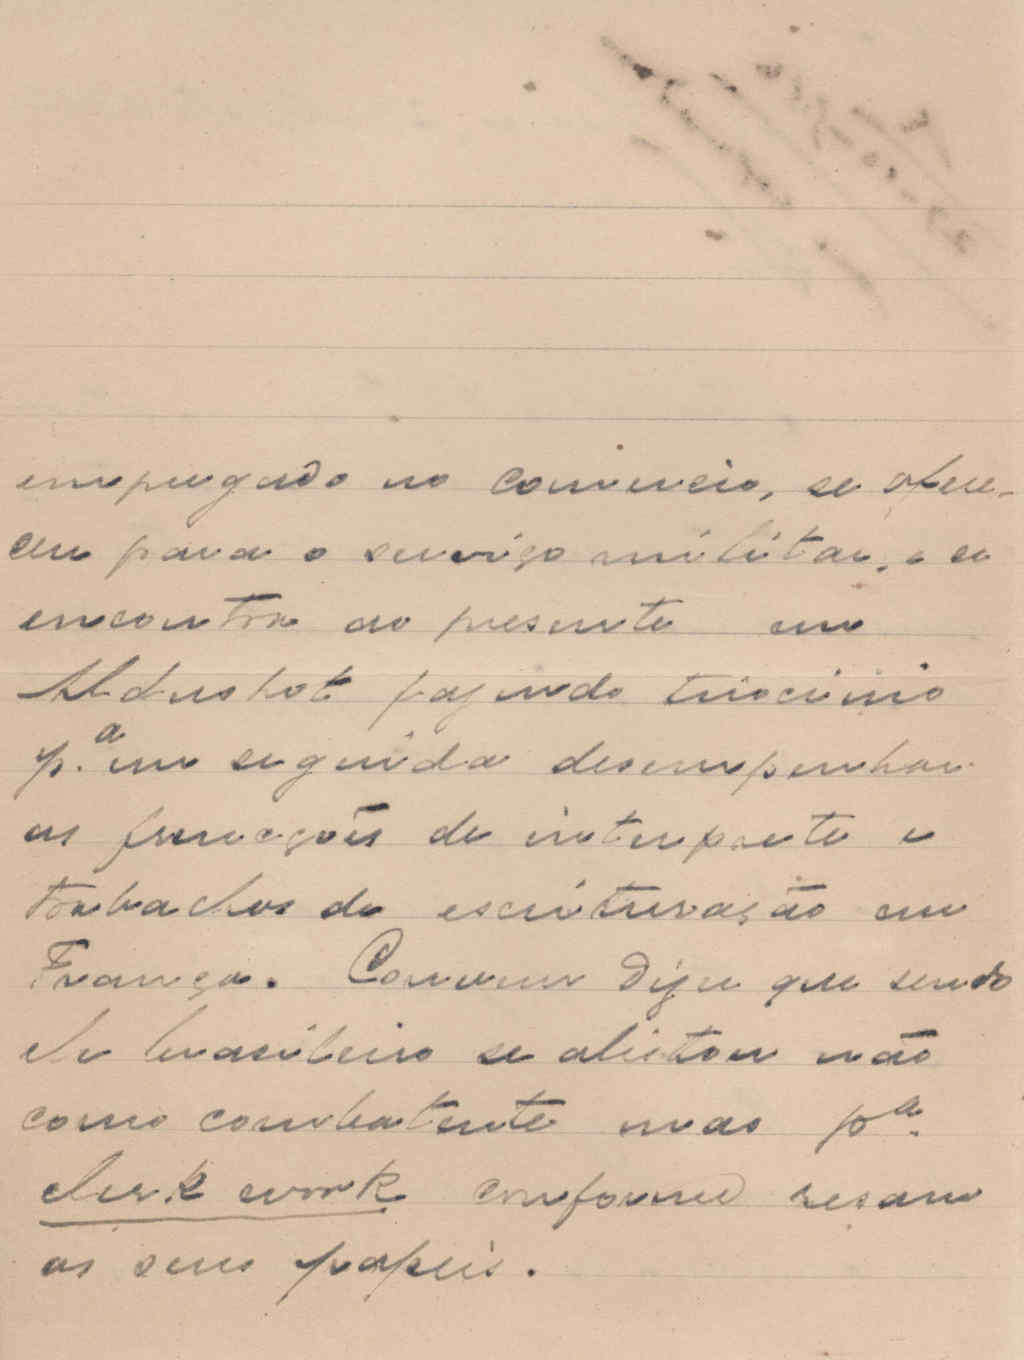 empregado no comercio, se ofere-
ceu para o serviço militar, e se
encontra ao presente em
Aldershot fazendo tirocinio
p.ª em seguida desempenhar
as funcções de interprete e
trabalhos de escrituração em
França. Convem dizer que sendo
ele brasileiro se alistou não
como combatente mas pª.
clerk work conforme resam
os seus papeis.